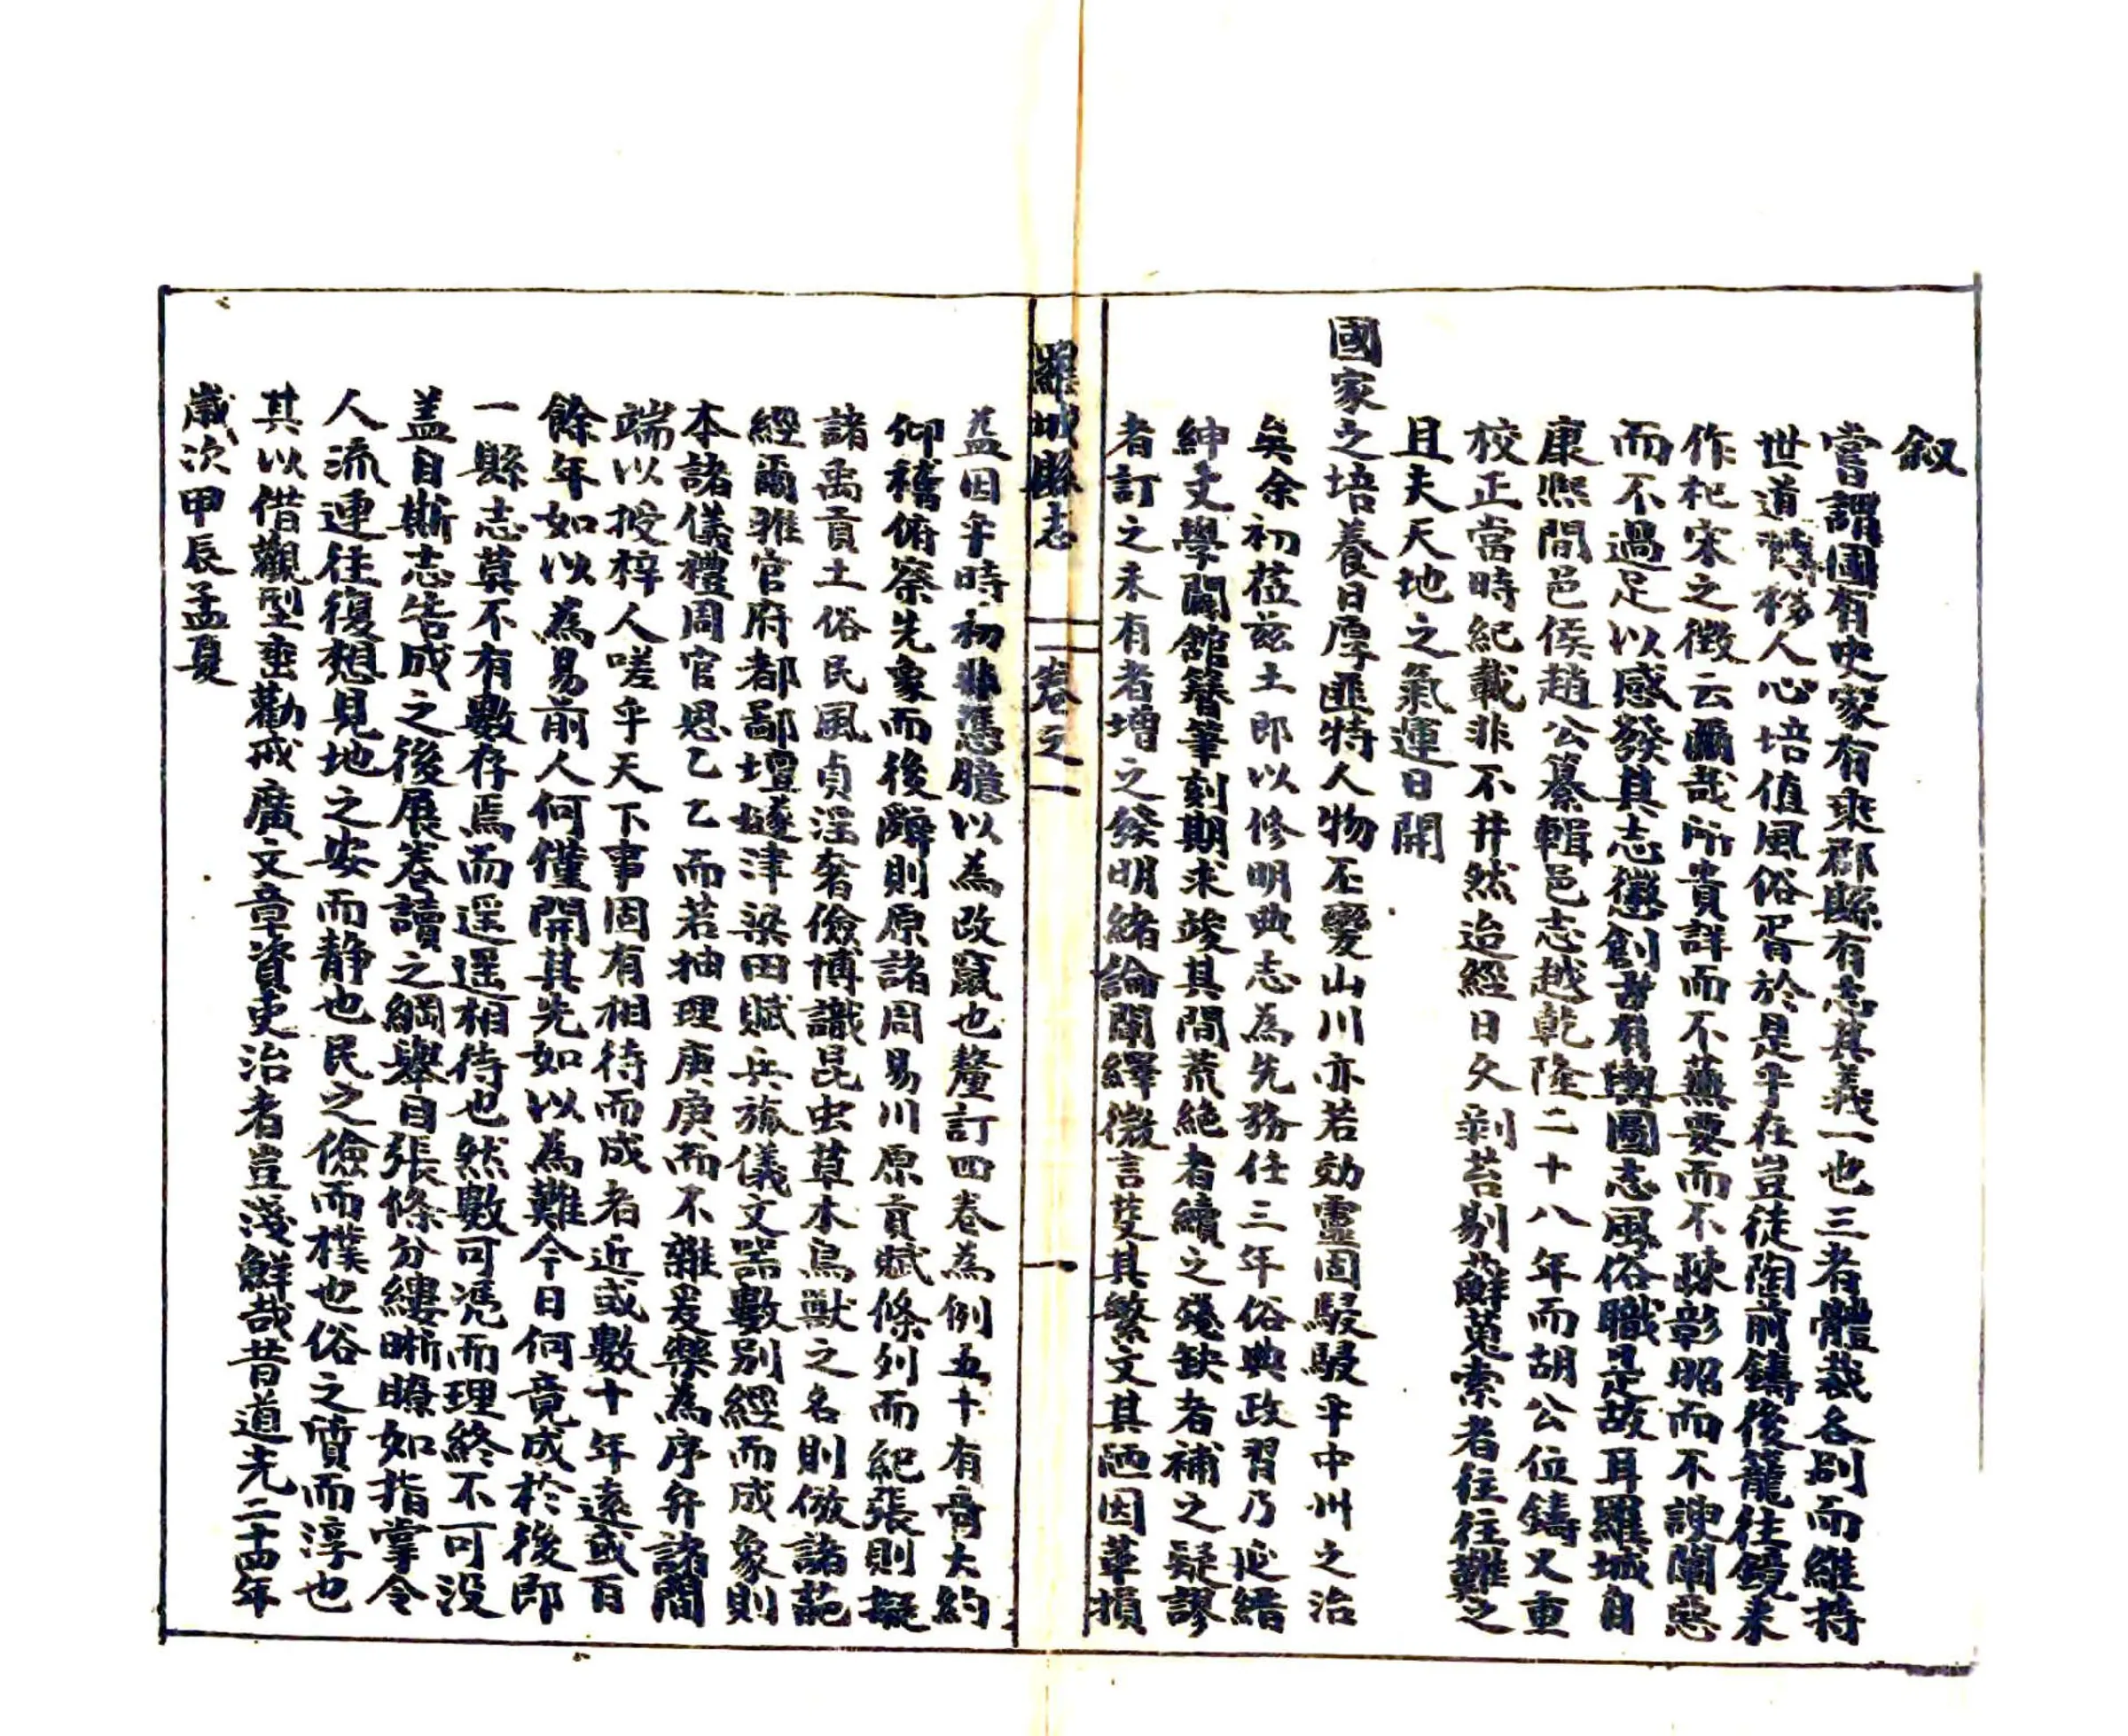 叙
嘗謂國有史家有乘郡縣有志其義一也三者體裁各別而維持
世道轉移人心培值風俗胥於是乎在豈徒陶前鑄後籠往鏡來
作杞宋之徵云爾哉所貴詳而不蕪要而不踈彰昭而不諛闡惡
而不過足以感發其志懲創者有輿圖志風俗職是故耳羅城自
康熙間邑侯趙公纂輯邑志越乾隆二十八年而胡公位鑄又重
校正當時紀載非不井然迨經日久剥苔剔蘚蒐索者往往難之
且夫天地之氣運日開
國家之培養日厚匪特人物丕變山川亦若効靈固駸駸乎中州之治
矣余初莅兹土郎以修明典志為先務任三年俗典政習乃延縉
紳文學開館簪筆刻期求竣其間荒絶者續之殘缺者補之疑謬
者訂之未有者增之發明緒論闡繹微言芟其繁文其陋因革損
羅城縣志 卷之一 一
益因乎時初非憑臆以為改竄也釐訂四卷為例五十有奇大約
仰稽俯察先象而後辭則原諸周易川原貢賦條列而紀張則擬
諸禹貢土俗民風貞淫奢儉博識昆虫草木鳥獸之名則倣諸葩
經爾雅官府都鄙壇壝津梁田賦兵旅儀文器數別經而成象則
本諸儀禮周官思乙乙而若抽理庚庚而不雜爰藥為序弁諸簡
端以授梓人嗟乎天下事固有相待而成者近或數十年遠或百
餘年如以為易前人何僅開其先如以為難今日何竟成於後即
一縣志莫不有數存焉而遥遥相待也然數可凴而理終不可没
盖自斯志告成之後展卷讀之綱舉目張條分縷晰瞭如指掌令
人流連往復想見地之安而静也民之儉而樸也俗之質而淳也
其以借觀型垂勸戒廣文章資吏治者豈淺鮮哉昔道光二十四年
歲次甲辰孟夏